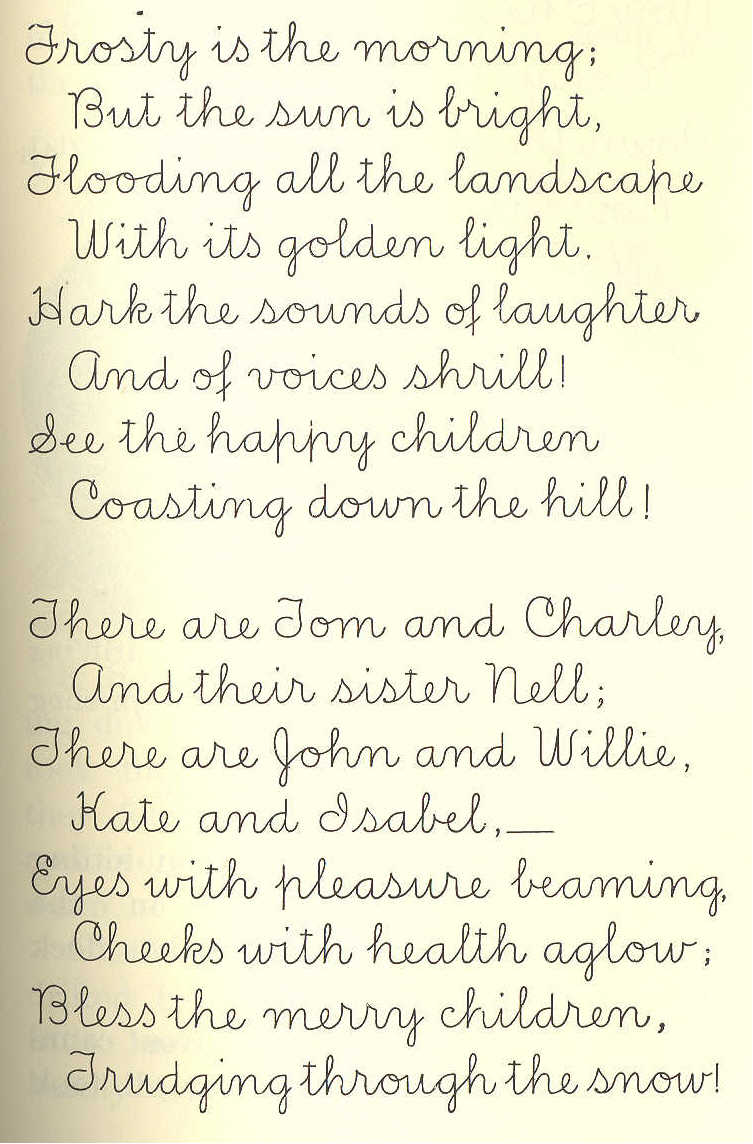 Frosty is the morning;
But the sun is bright,
Flooding all the landscape
With its golden light.
Hark the sounds of laughter
And of voices shrill!
See the happy children
Coasting down the hill!
There are Tom and Charley,
And their sister Nell;
There are John and Willie,
Kate and Isabel,—
Eyes with pleasure beaming,
Cheeks with health aglow;
Bless the merry children,
Trudging through the snow!